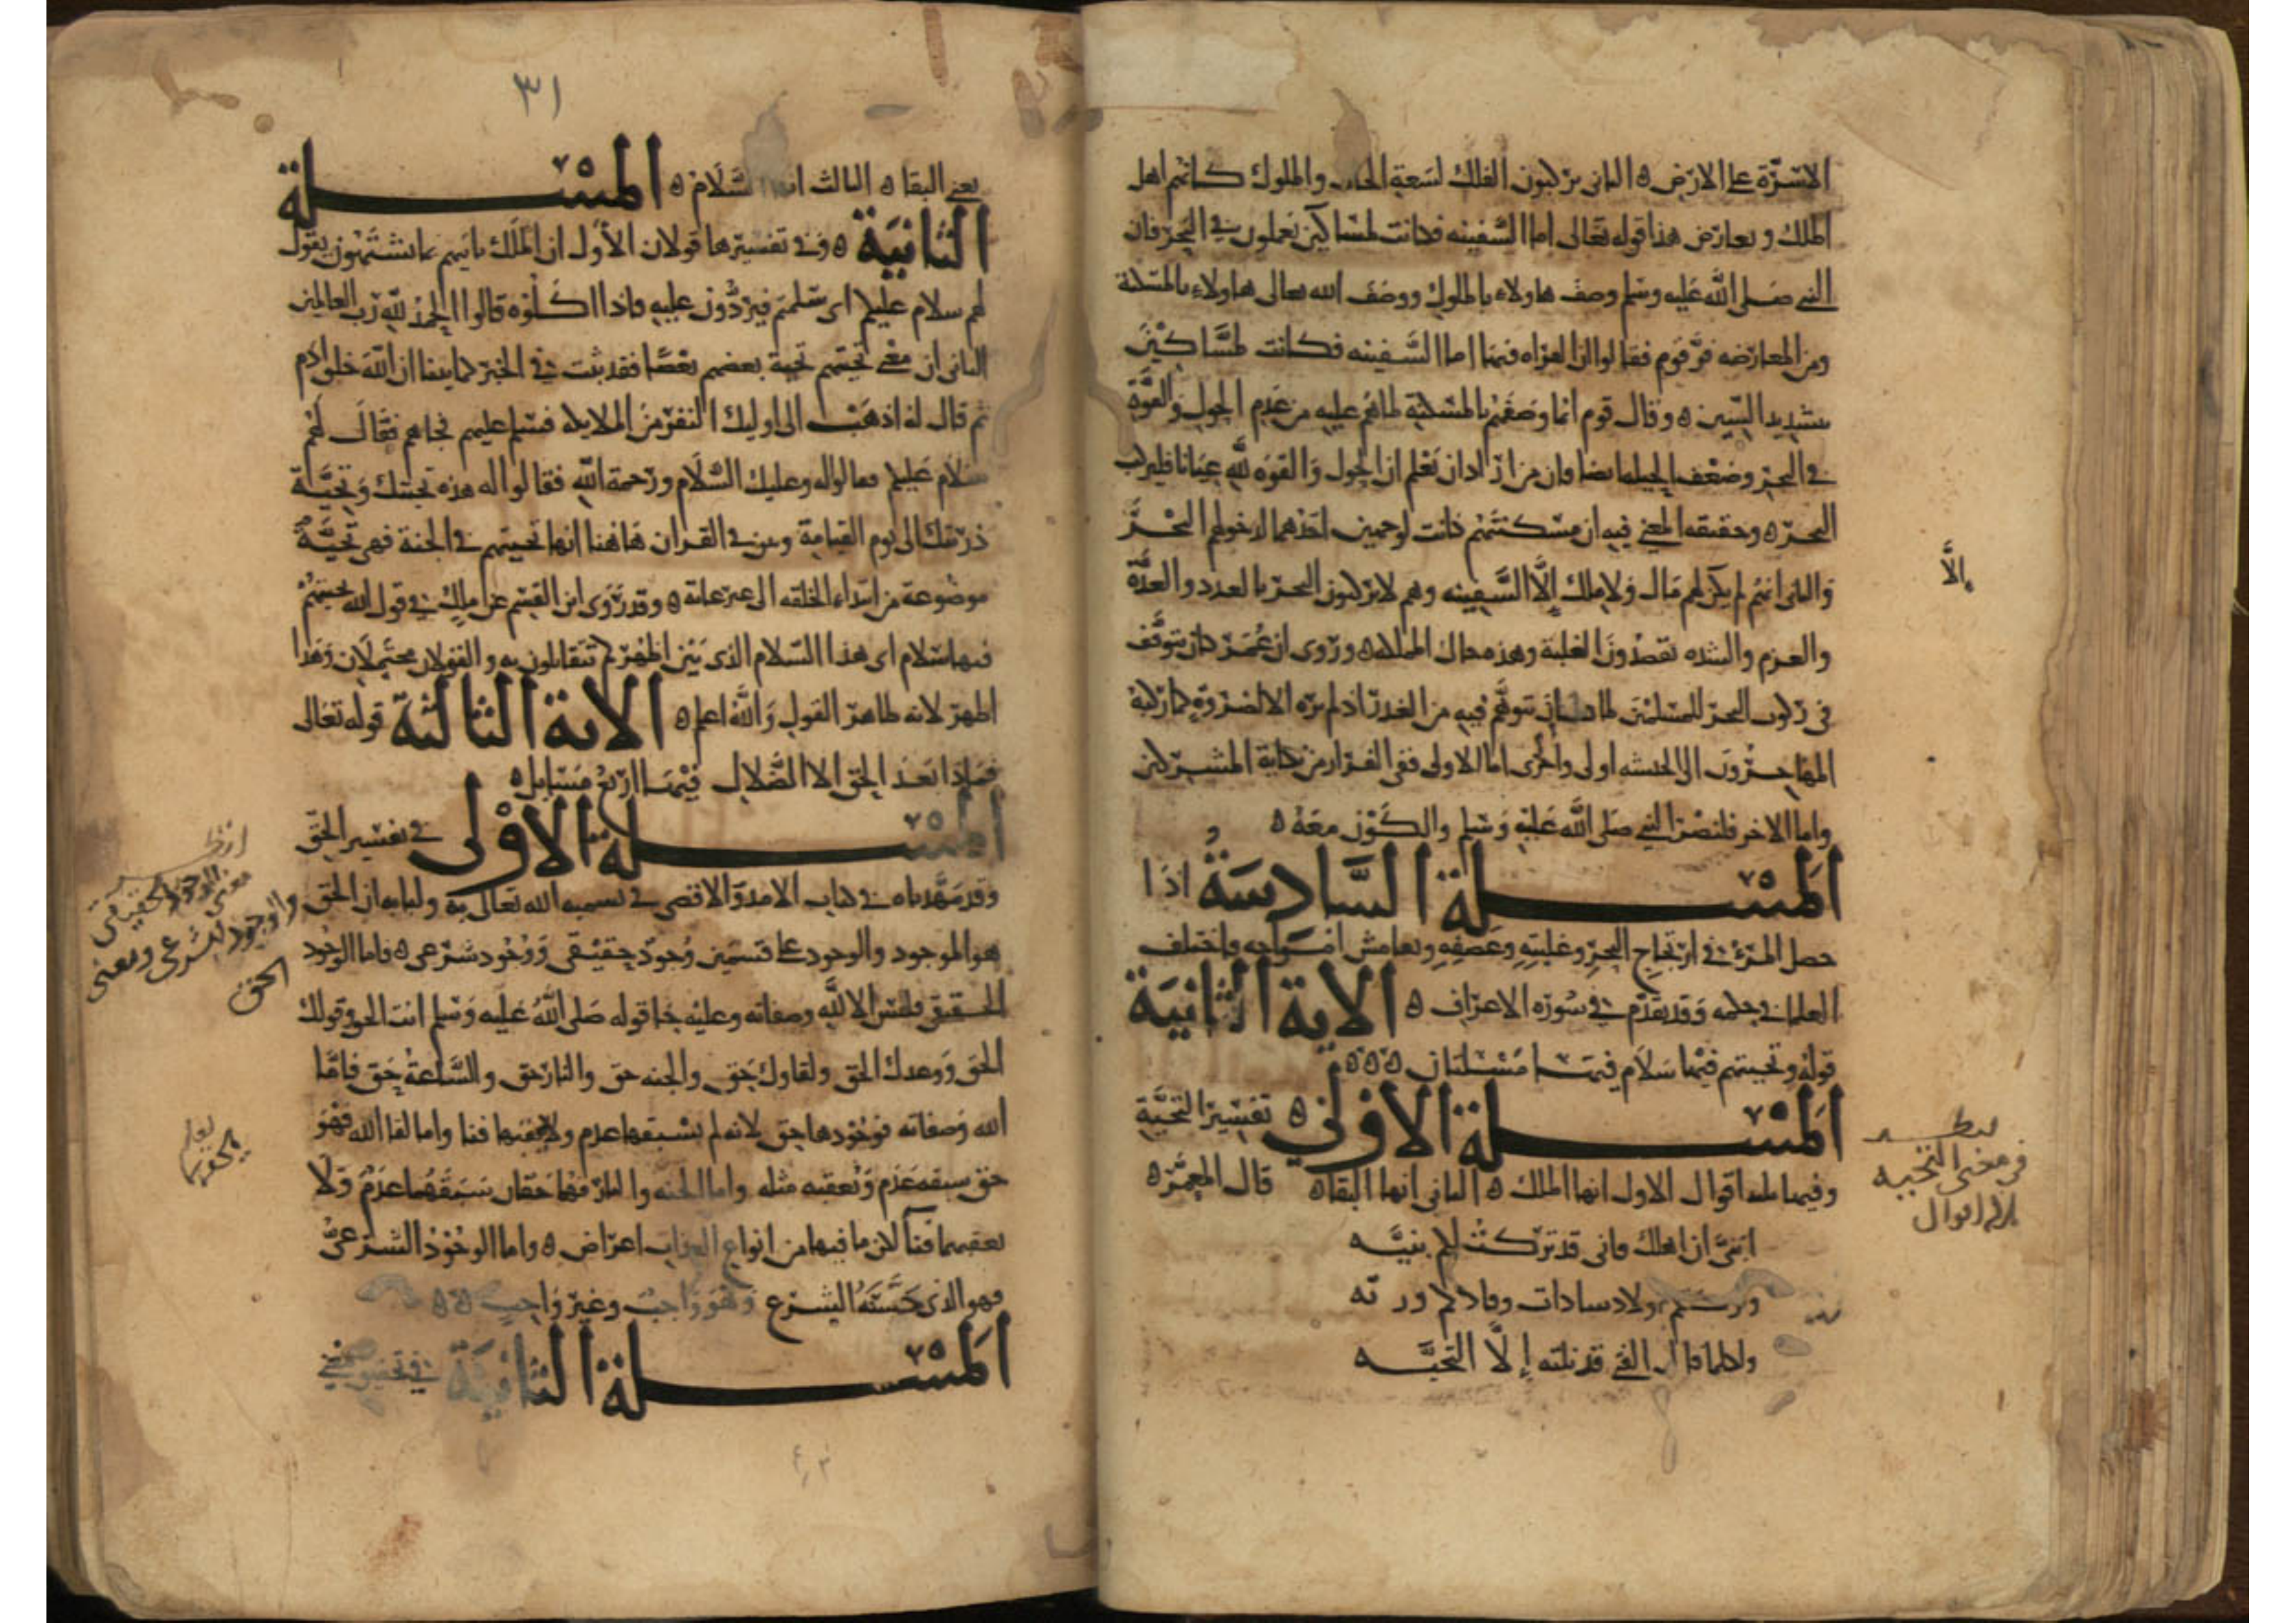 الاسرّة على الارض ه الثاني يركبون الفلك لسعة الحال والملوك كأنهم اهل
الملك ويعارض هذا قوله تعالى اما السفينه فكانت لمساكين يعملون في البحر فان
النبي صلى الله عليه وسلم وصف هاولاء بالملوك ووصف الله تعالى هاولاء بالمسكنة
ومن المعارضه فرّ قوم فقالوا ان القراه فيها اما السَّفينه فكانت لمسَّاكين
بتشديد السين ه وقال قوم انما وصفهم بالمسكنة لما هم عليه من عدم الحول والقوّة
في البحر وضعف الحيله ايضا فان من اراد ان يعلم ان الحول والقوه لله عيانا فليركب
البحر ه وحقيقه المعنى فيه ان مسكنتهم كانت لوجهين احدهما لدخولهم البحر
والثاني انهم لم يكن لهم مال ولا ملك إلَّا السَّفينه وهم لا يركبون البحر بالعدد والعدَّة
والعزم والشده يقصدون الغلبة وهذه حال المملكه ه وروى ان عمر كان يتوقّف
في ركوب البحر للمسلمين لما كان يتوهَّم فيه من الغدر اذ لم يره الا لضروره كما ركبه
المهاجرون الى الحبشه اولى واخرى اما الاولى ففي الفرار من نكاية المشركين
واما الاخر فلنصر النبي صلى الله عليه وسلم والكون معه ه
المسلة السَّادسة اذا
حصل المرء في ارتجاج البحر وغلبته وعصفه وتعامش امواجه فاختلف
العلما في حكمه وقد تقدم في سورة الاعراف ه الاية الثانية
قوله وتحيتهم فيها سلام فيها مسلتان ه ه ه
المسلة الاولى ه تفسير التحيّة
وفيها ثلثة اقوال الاول انها الملك ه الثاني انها البقا ه قال المعمّر ه
ابنيّ ان اهلك فاني قد تركت لكم بنيَّه
وتركتكم اولاد سادات زنادكم وريّه
ولكلما نال الفتى قد نلته إلّا التحيَّه
إلَّا
مطلب
في معنى التحيه
ثلاثة اقوال
٣١
يعني البقا ه الثالث انها السَّلام ه المسلة
الثانية ه وفي تفسيرها قولان الأول ان الملك ياتيهم بما يشتهون يقول
لهم سلام عليكم اى سلمتم فيردُّون عليه فاذا اكلوه قالوا الحمد لله رب العالمين
الثاني ان معنى تحيتهم تحية بعضهم بعضًا فقد ثبت في الخبر كما بينا ان الله خلق ادم
ثم قال له اذهب الى اوليك النفر من الملايكه فسلم عليهم فجاهم فقال لهم
سلام عليكم فقالوا له وعليك السّلام ورحمة الله فقالوا له هذه تحيتك وتحيَّة
ذريّتك الى يوم القيامة وبين في القران هاهنا انها تحيتهم في الجنة فهي تحيَّة
موضوعة من ابتداء الخلقه الى غير غاية ه وقد روى ابن القسم عن مالك في قول الله تحيتهم
فيها سلام اى هذا السّلام الذى بين اظهركم تتقابلون به والقولان محتملان وهذا
اظهر لانه ظاهر القول والله اعلم ه الاية الثالثة قوله تعالى
فماذا بعد الحق الا الضّلال فيها اربع مسايل ه
المسلة الاولى في تفسير الحق
وقد مهَّدناه في كتاب الامد الاقصى في تسميه الله تعالى به ولبابه ان الحق
هو الموجود والوجود على قسمين وجود حقيقى ووجود شرعى ه فاما الوجود
الحقيقى فليس الا لله وصفاته وعليه جا قوله صلى الله عليه وسلم انت الحق وقولك
الحق ووعدك الحق ولقاوك حق والجنه حق والنار حق والسَّاعة حق فامَّا
الله وصفاته فوجودها حق لانه لم يسبقها عدم ولا يعقبها فنا واما لقا الله فهو
حق سبقه عدم ويعقبه مثله واما الجنه والنار فهما حقان سبقهما عدم ولا
يعقبهما فنآ لان ما فيها من انواع العذاب اعراض ه واما الوجود الشرعىّ
فهو الذى حسَّنه الشرع وهو واجب وغير واجب ه ه
المسلة الثانية في تحقيق معنى
معنى الوجود الحقيقي
والوجود الشرعي ومعنى
الحق